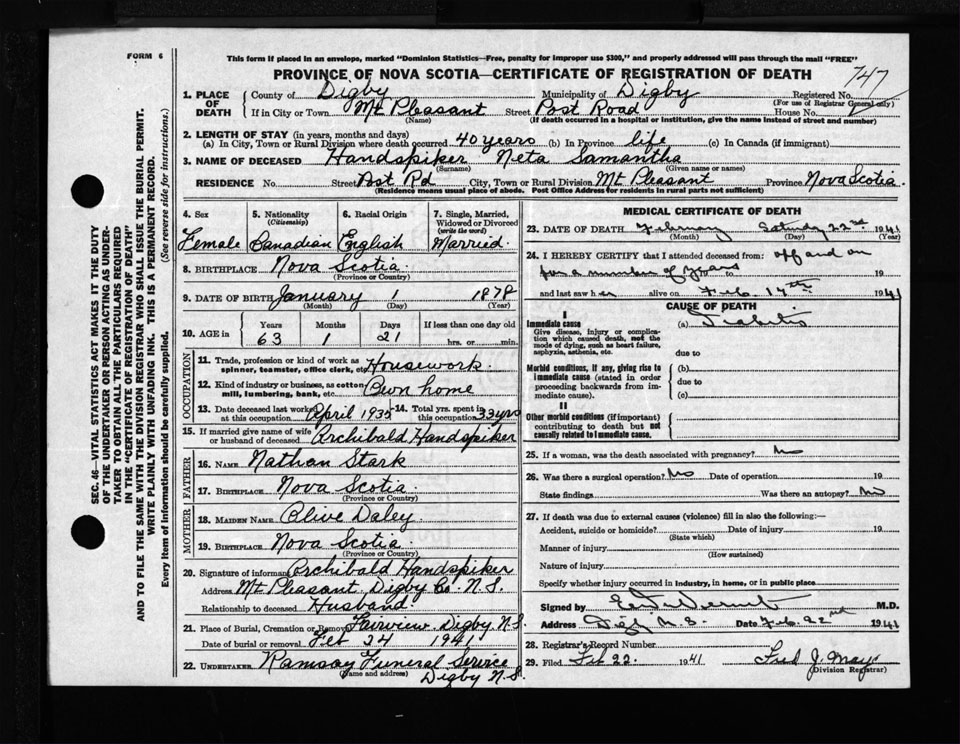 FORM 6
This form if placed in an envelope, marked "Dominion Statistics—Free, penalty for improper use $300," and properly addressed will pass through the mail "FREE"
PROVINCE OF NOVA SCOTIA—CERTIFICATE OF REGISTRATION OF DEATH
747
1. PLACE OF DEATH
County of Digby Municipality of Digby Registered No.
(For use of Registrar General only)
If in City or Town Mt Pleasant Street Post Road House No.
(Name) (If death occurred in a hospital or institution, give the name instead of street and number)
2. LENGTH OF STAY (in years, months and days)
(a) In City, Town or Rural Division where death occurred 40 years (b) In Province life (c) In Canada (if immigrant)
3. NAME OF DECEASED Handspiker Neta Samantha
(Surname) (Given name or names)
RESIDENCE No. Street Post Rd City, Town or Rural Division Mt Pleasant Province Nova Scotia.
(Residence means usual place of abode. Post Office Address for residents in rural parts not sufficient)
4. Sex 5. Nationality (Citizenship) 6. Racial Origin 7. Single, Married, Widowed or Divorced (write the word)
Female Canadian English Married.
8. BIRTHPLACE Nova Scotia.
(Province or Country)
9. DATE OF BIRTH January 1 1878
(Month) (Day) (Year)
10. AGE in Years Months Days If less than one day old
63 1 21 hrs. or min.
OCCUPATION
11. Trade, profession or kind of work as spinner, teamster, office clerk, etc. Housework.
12. Kind of industry or business, as cotton mill, lumbering, bank, etc. Own home
13. Date deceased last worked at this occupation April 1935 14. Total yrs. spent in this occupation 33 yrs
15. If married give name of wife or husband of deceased Archibald Handspiker
FATHER
16. NAME Nathan Stark
17. BIRTHPLACE Nova Scotia.
(Province or Country)
MOTHER
18. MAIDEN NAME Olive Daley.
19. BIRTHPLACE Nova Scotia.
(Province or Country)
20. Signature of informant Archibald Handspiker
Address Mt Pleasant. Digby Co. N.S.
Relationship to deceased Husband.
21. Place of Burial, Cremation or Removal Fairview. Digby N.S.
Date of burial or removal Feb 24 1941
22. UNDERTAKER Ramsay Funeral Service
(Name and address) Digby N.S.
MEDICAL CERTIFICATE OF DEATH
23. DATE OF DEATH February Saturday 22nd 1941
(Month) (Day) (Year)
24. I HEREBY CERTIFY that I attended deceased from: off and on
for a number of years 19
and last saw her alive on Feb. 17th 1941
CAUSE OF DEATH
I
Immediate cause
Give disease, injury or complication which caused death, not the mode of dying, such as heart failure, asphyxia, asthenia, etc.
(a)
due to
Morbid conditions, if any, giving rise to immediate cause (stated in order proceeding backwards from immediate cause).
(b)
due to
(c)
II
Other morbid conditions (if important) contributing to death but not causally related to immediate cause.
25. If a woman, was the death associated with pregnancy? No
26. Was there a surgical operation? No Date of operation 19
State findings Was there an autopsy? No
27. If death was due to external causes (violence) fill in also the following:—
Accident, suicide or homicide? Date of injury 19
(State which)
Manner of injury
(How sustained)
Nature of injury
Specify whether injury occurred in industry, in home, or in public place
Signed by M.D.
Address Digby N.S. Date Feb. 22nd 1941
28. Registrar's Record Number
29. Filed Feb 22. 1941 Fred J. May
(Division Registrar)
SEC. 46—VITAL STATISTICS ACT MAKES IT THE DUTY
OF THE UNDERTAKER OR PERSON ACTING AS UNDER-
TAKER TO OBTAIN ALL THE PARTICULARS REQUIRED
IN THE "CERTIFICATE OF REGISTRATION OF DEATH"
AND TO FILE THE SAME WITH THE DIVISION REGISTRAR WHO SHALL ISSUE THE BURIAL PERMIT.
WRITE PLAINLY WITH UNFADING INK. THIS IS A PERMANENT RECORD.
Every item of information should be carefully supplied. (See reverse side for instructions.)